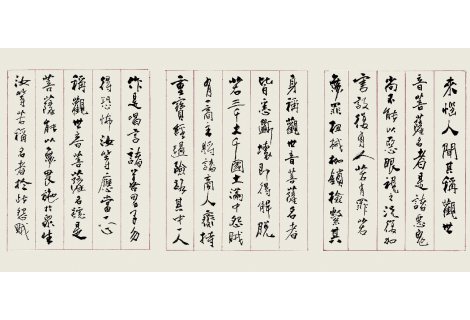 來惱人聞其稱觀世
音菩薩名者是諸惡鬼
尚不能以惡眼視之況復加
害設復有人若有罪若
無罪杻械枷鎖檢繫其
身稱觀世音菩薩名者
皆悉斷壞即得解脫
若三千大千國土滿中怨賊
有一商主將諸商人齎持
重寶經過險路其中一人
作是唱言諸善男子勿
得恐怖汝等應當一心
稱觀世音菩薩名號是
菩薩能以無畏施於眾生
汝等若稱名者於此怨賊